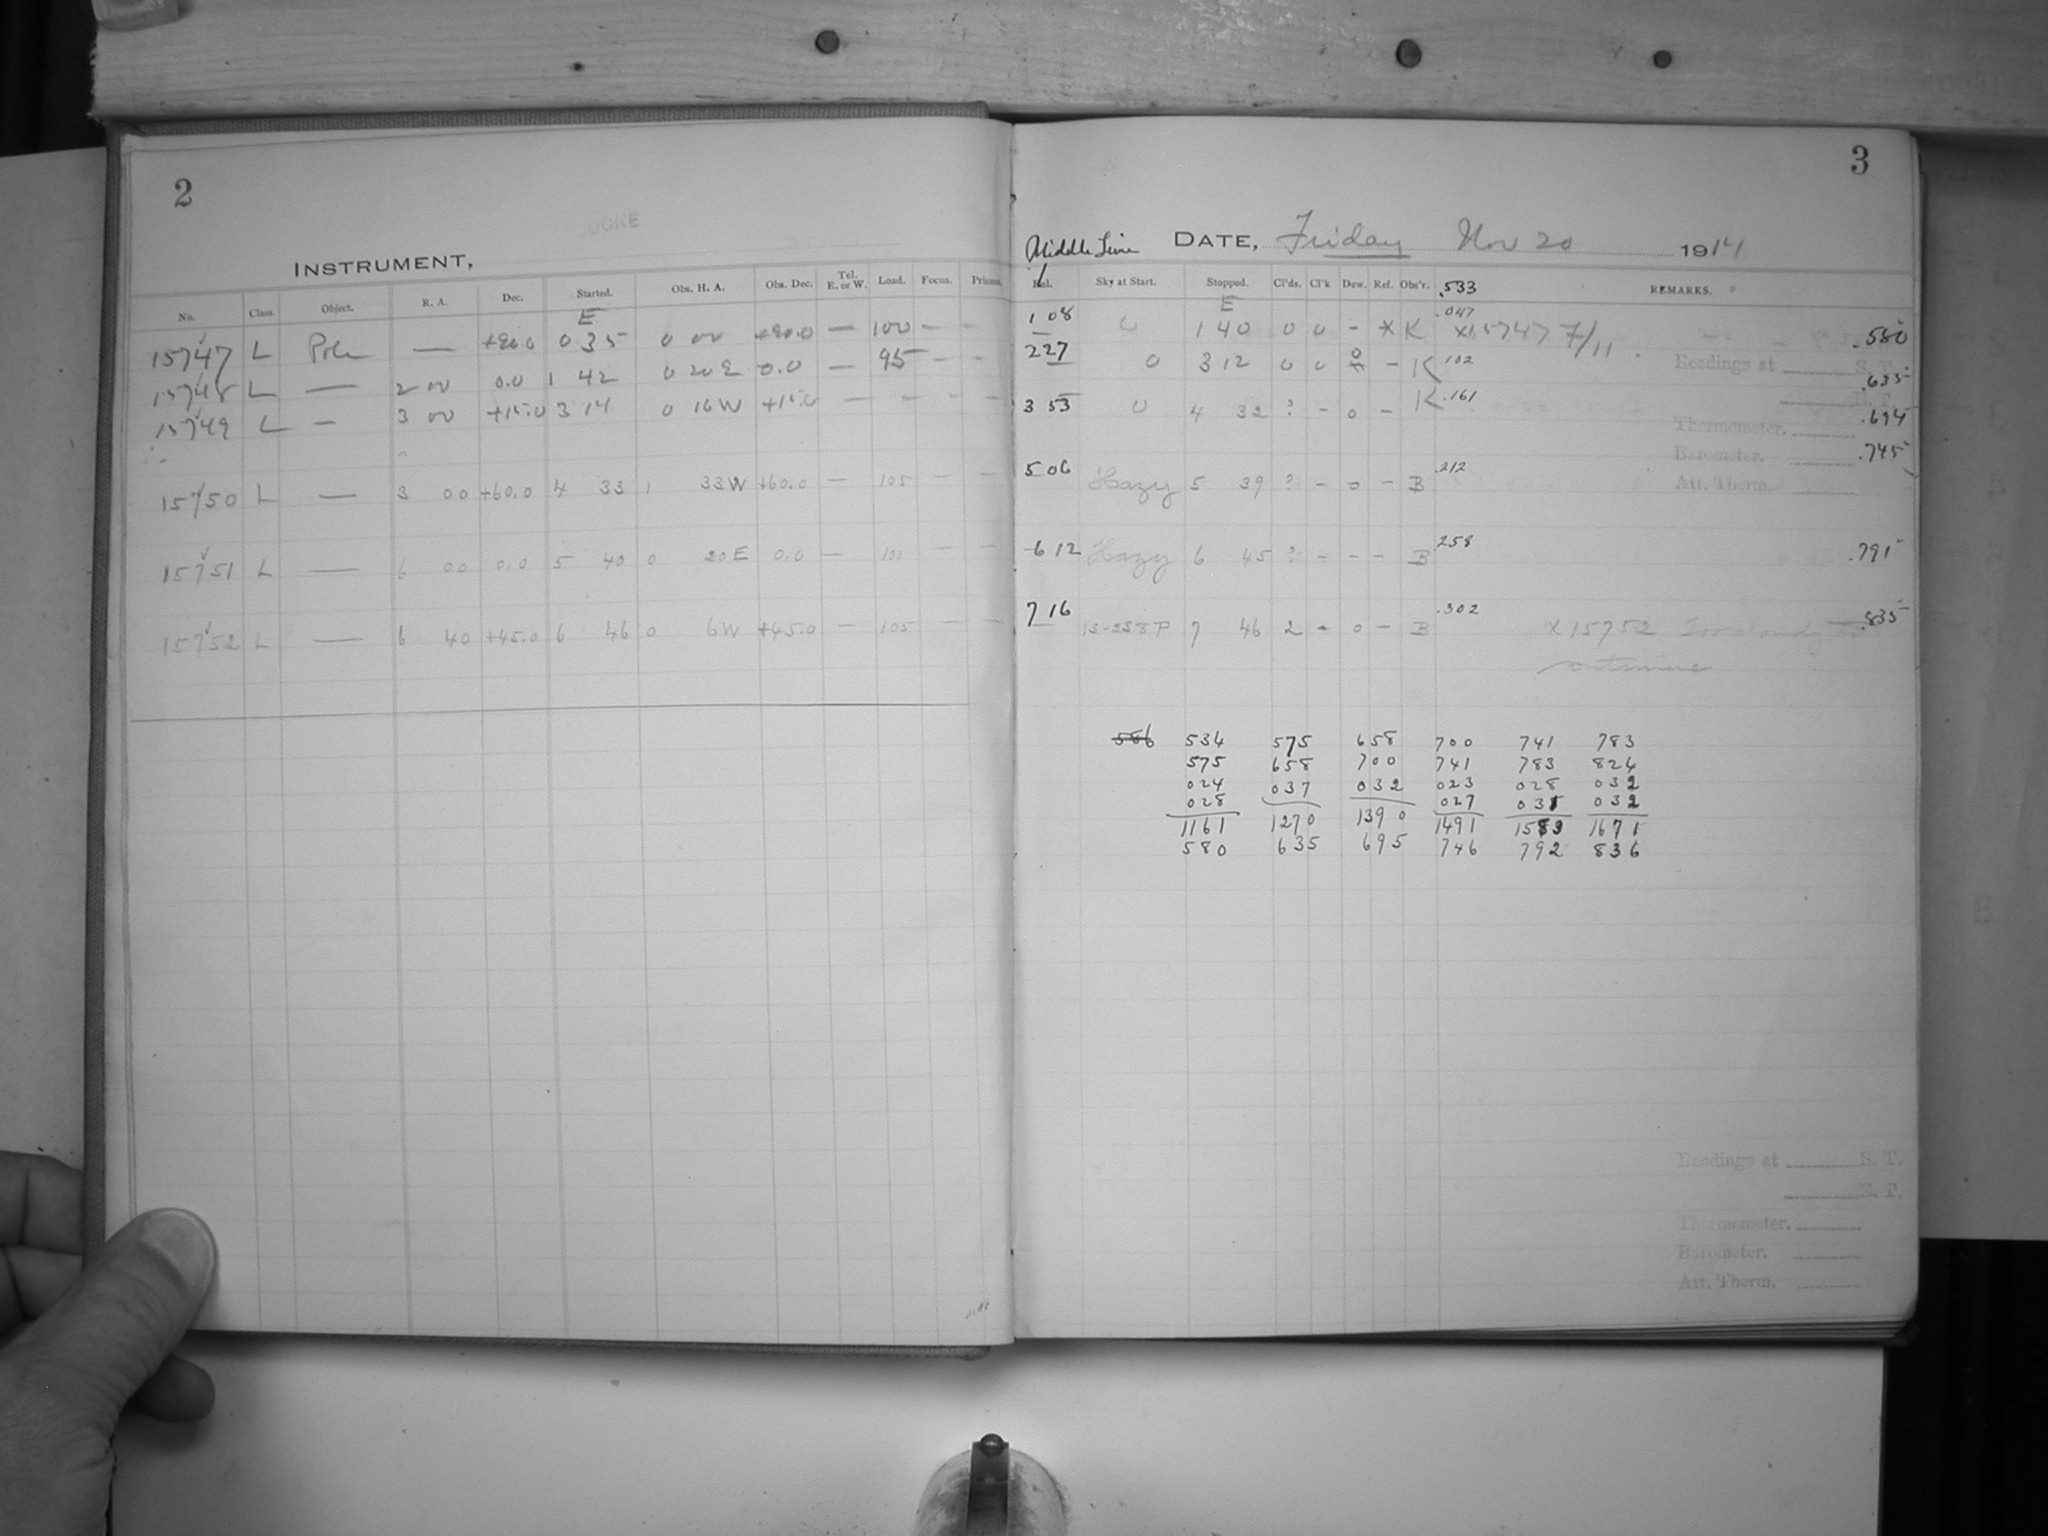 2
INSTRUMENT,
No. Class. Object. R. A. Dec. Started. Obs. H. A. Obs. Dec. Tel. E. or W. Load. Focus. Prisms.
E
15747 L Pole — +90.0 0 35 0 00 +90.0 — 100 — —
15748 L — 2 00 0.0 1 42 0 20 E 0.0 — 95 — —
15749 L — 3 00 +15.0 3 14 0 16 W +15.0 — — — —
15750 L — 3 00 +60.0 4 33 1 33 W +60.0 — 105 — —
15751 L — 6 00 0.0 5 40 0 20 E 0.0 — 100 — —
15752 L — 6 40 +45.0 6 46 0 6 W +45.0 — 105 — —
3
Middle Time DATE, Friday Nov 20 1914
Sky at Start. Stopped. Cl'ds. Cl'k Dew. Ref. Obs'r. .533 REMARKS.
E
1 08 0 1 40 0 0 - * K .047 x15747 7/11. .580
2 27 0 3 12 0 0 0 - K .102 .635
3 53 0 4 32 ? - 0 - K .161 .694
5 06 Hazy 5 39 ? - 0 - B .212 .745
6 12 Hazy 6 45 ? - - - B .258 .791
7 16 7 46 2 - 0 - B .302 x 15752 Too cloudy to .835
continue
Readings at S. T.
Thermometer.
Barometer.
Att. Therm.
586 534 575 658 700 741 783
575 658 700 741 783 824
024 037 032 023 028 032
028 027 031 032
1161 1270 1390 1491 1583 1671
580 635 695 746 792 836
Readings at S. T.
E. T.
Thermometer.
Barometer.
Att. Therm.